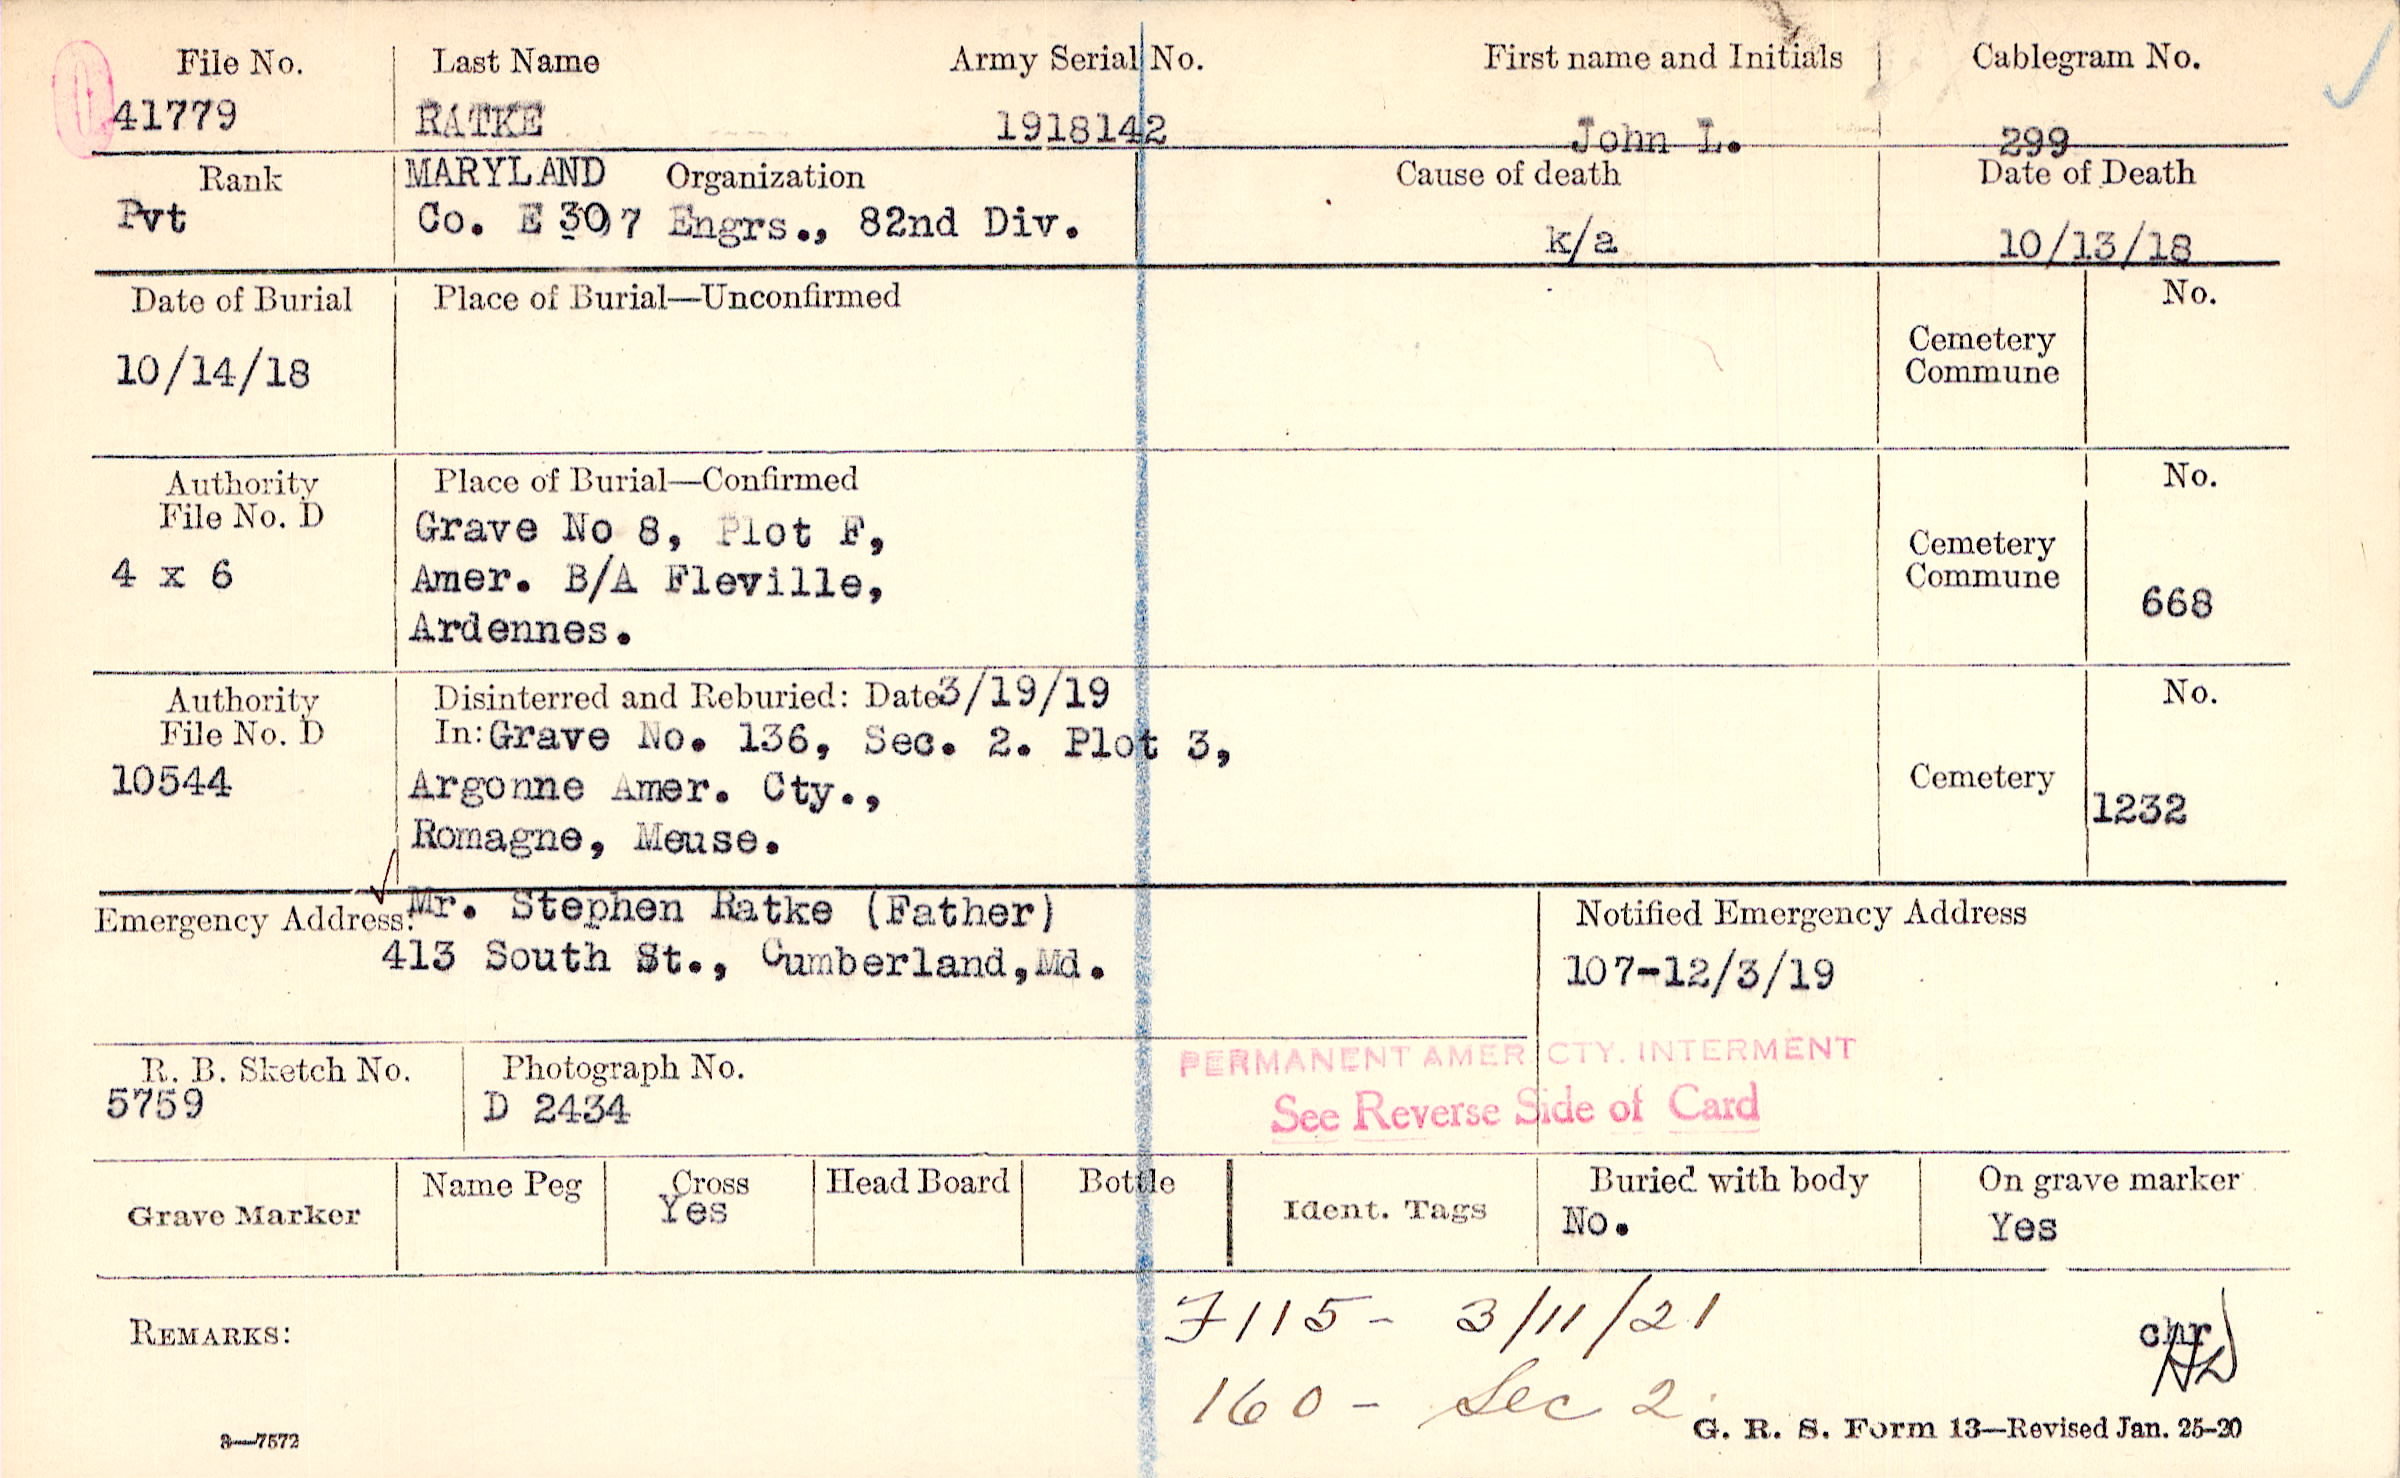 File No. Last Name Army Serial No. First name and Initials Cablegram No.
41779 RATKE 1918142 John L. 299
Rank MARYLAND Organization Cause of death Date of Death
Pvt Co. E 307 Engrs., 82nd Div. k/a 10/13/18
Date of Burial Place of Burial—Unconfirmed No.
10/14/18 Cemetery
Commune
Authority Place of Burial—Confirmed No.
File No. D Grave No 8, Plot F,
4 x 6 Amer. B/A Fleville, Cemetery
Commune 668
Ardennes.
Authority Disinterred and Reburied: Date 3/19/19 No.
File No. D In: Grave No. 136, Sec. 2. Plot 3,
10544 Argonne Amer. Cty., Cemetery 1232
Romagne, Meuse.
Emergency Address: Mr. Stephen Ratke (Father) Notified Emergency Address
413 South St., Cumberland,Md. 107-12/3/19
R. B. Sketch No. Photograph No. PERMANENT AMER CTY. INTERMENT
5759 D 2434 See Reverse Side of Card
Grave Marker Name Peg Cross Head Board Bottle Ident. Tags Buried with body On grave marker
Yes No. Yes
REMARKS: F115- 3/11/21 chr
160- Sec 2.
3—7572 G. R. S. Form 13—Revised Jan. 25-20